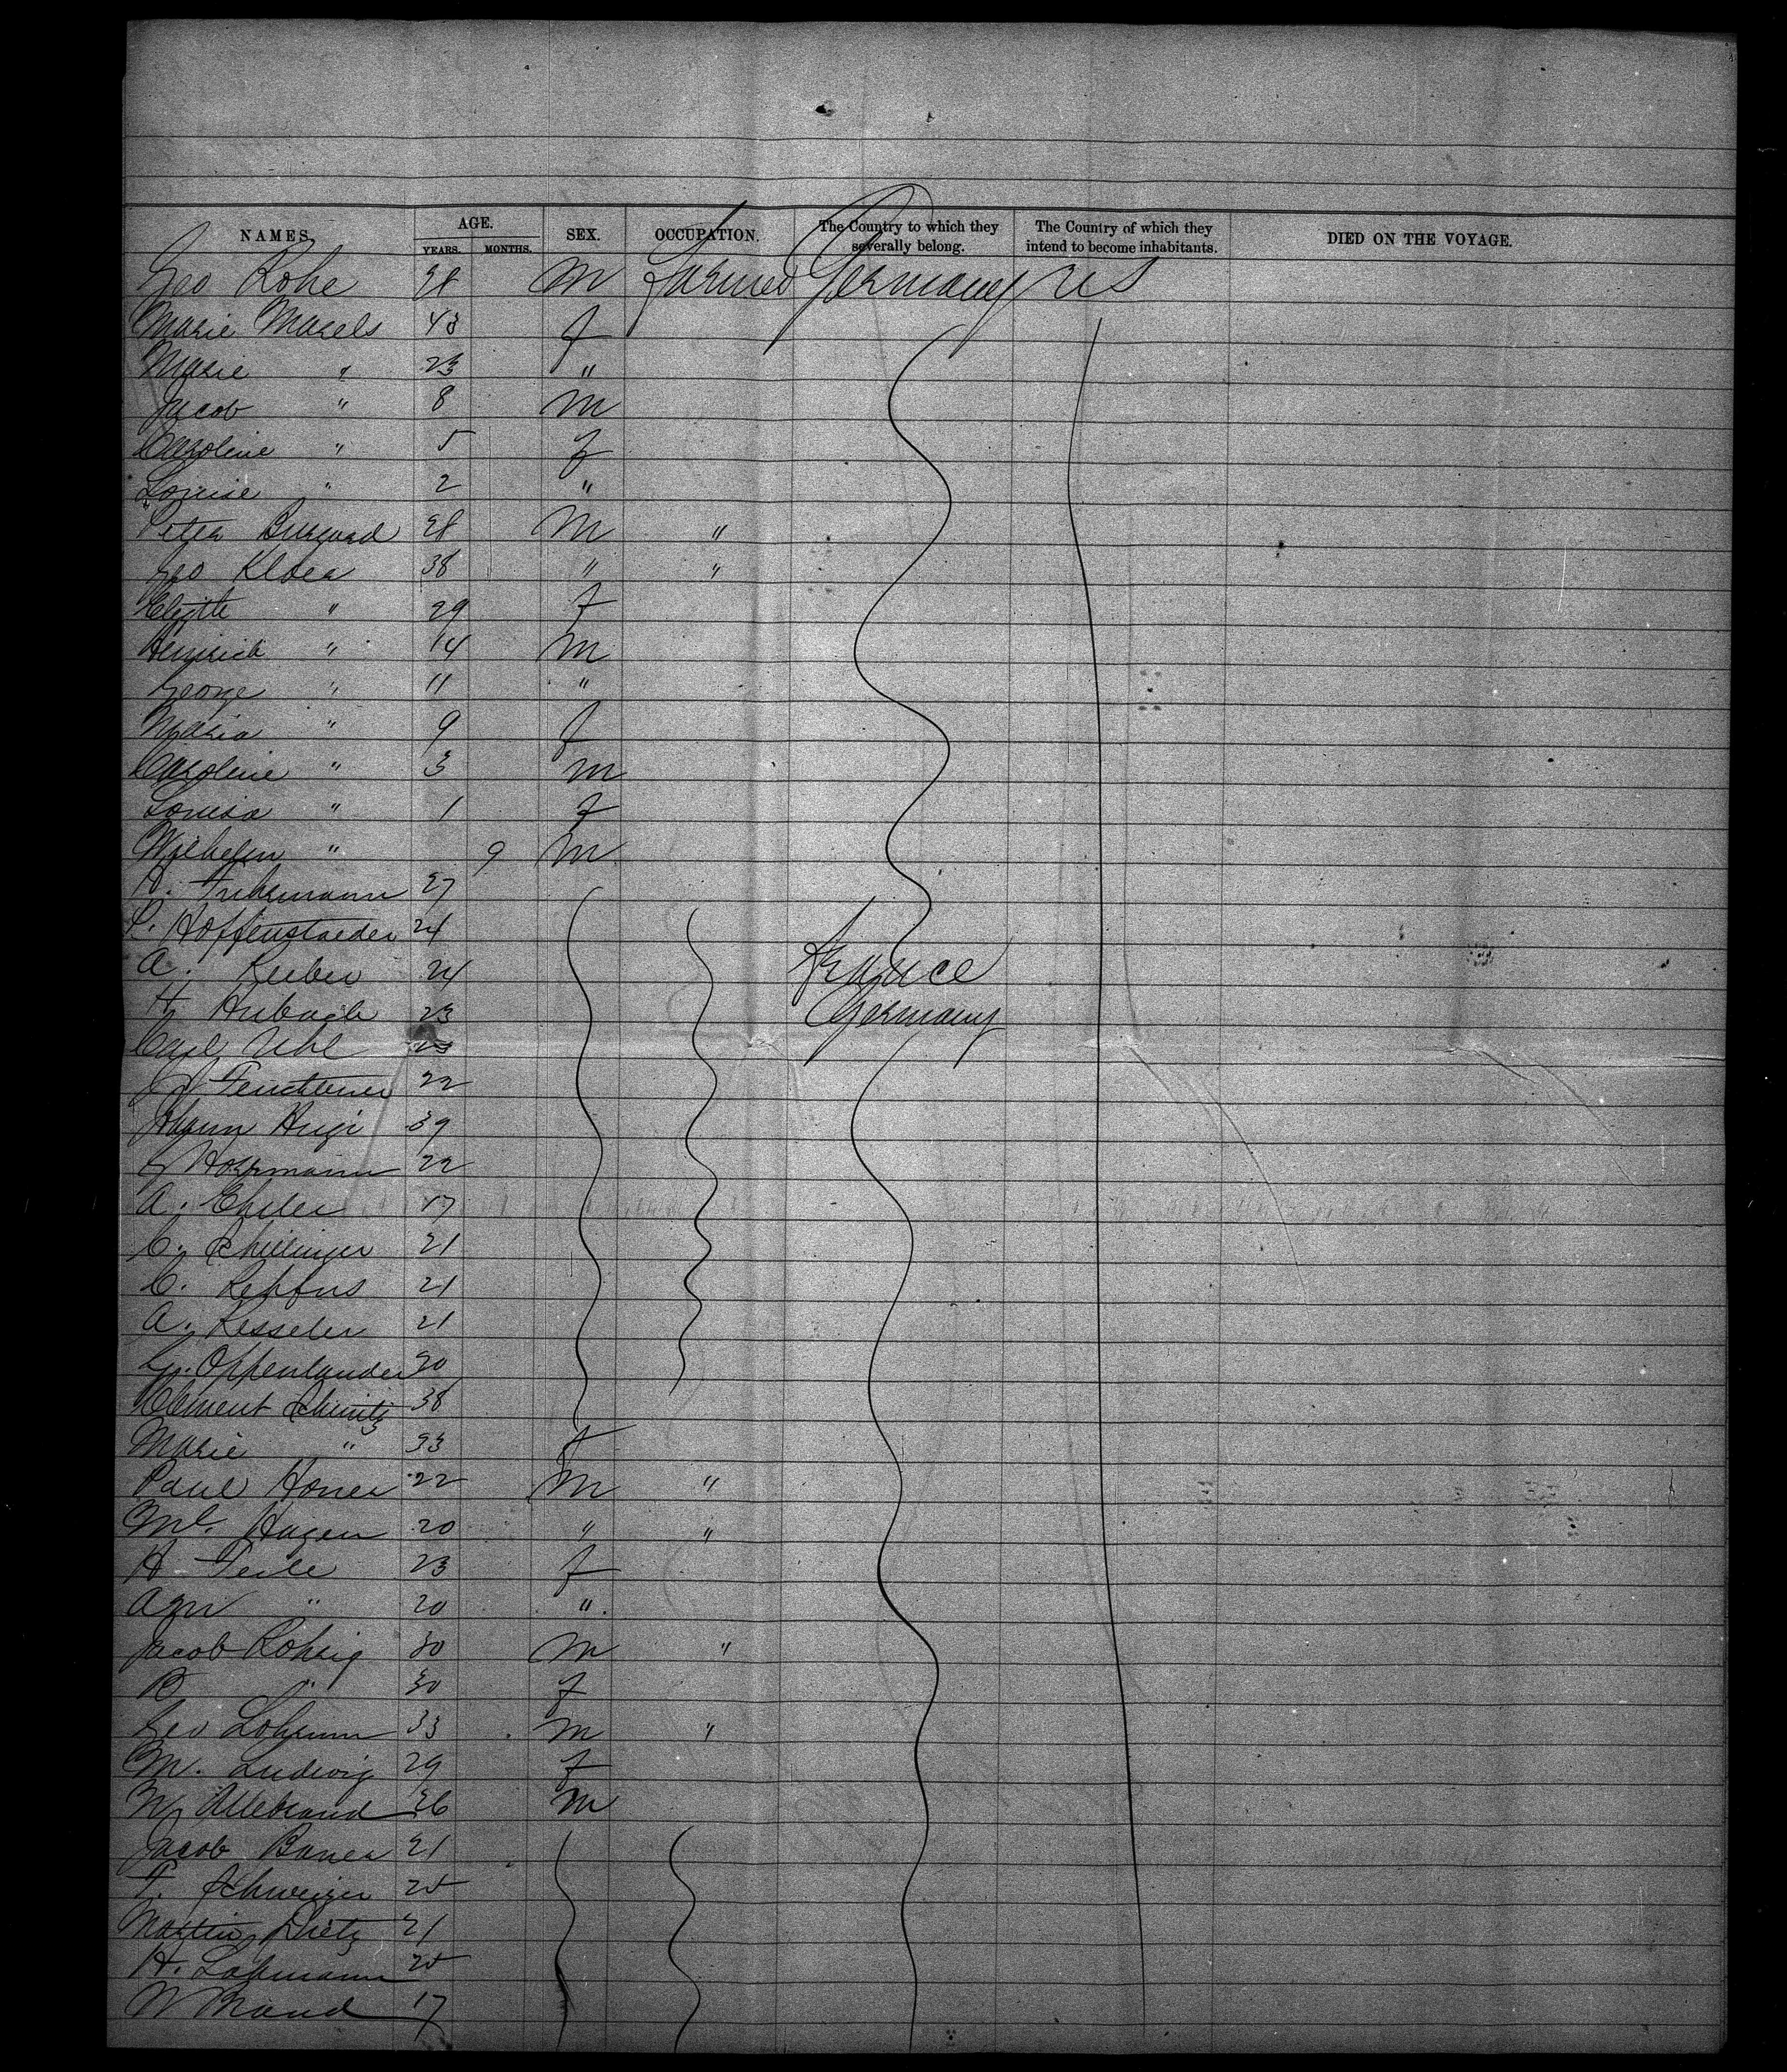 NAMES. AGE. YEARS. MONTHS. SEX. OCCUPATION. The Country to which they severally belong. The Country of which they intend to become inhabitants. DIED ON THE VOYAGE.
Geo Rohe 28 M Farmer Germany US
Marie Marels 43 f
Marie " 23 "
Jacob " 8 M
Caroline " 5 f
Louise " 2 "
Peter Burgard 28 M "
Geo Kloer 38 " "
" 29 f
Heinrich " 14 M
George " 11 "
Maria " 9 f
Caroline " 3 m
Louisa " 1 f
Wilhelm " 9 M
H. 27
L. Hoffenstaeder 24
A. Reiber 24 France
H Hubach 23 Germany
Carl Uhl 23
22
Hugi 39
Hoffmann 22
A. Ehrler 17
C. Schillinger 21
C. Rehfus 21
A. Kesseler 21
G. Oppenlander 30
Clement Schmitz 38
Marie " 33 f
Paul Honer 22 M "
Ml. Hagen 20 " "
H Teile 23 f
Agn " 20 "
Jacob Rohrig 30 M "
B " 30 f
Geo Lohrum 33 M "
M. Ludwig 29 f
W. Allebrand 26 M
Jacob Bauer 21
F. Schweizer 25
Martin Dietz 21
H. Lapmann 25
W Brand 17